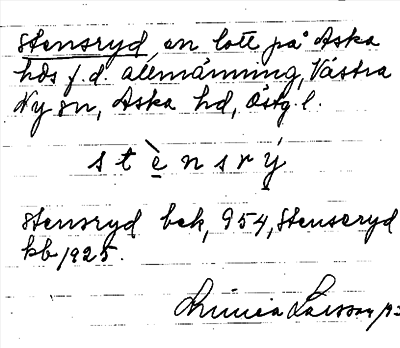 Stensryd, en lott på Aska
hds f.d. allmänning, Västra
Ny sn, Aska hd, Östg. l.
s t è n s r ý
Stensryd bek, 954, Stenseryd
kb 1925.
Linnea Larsson